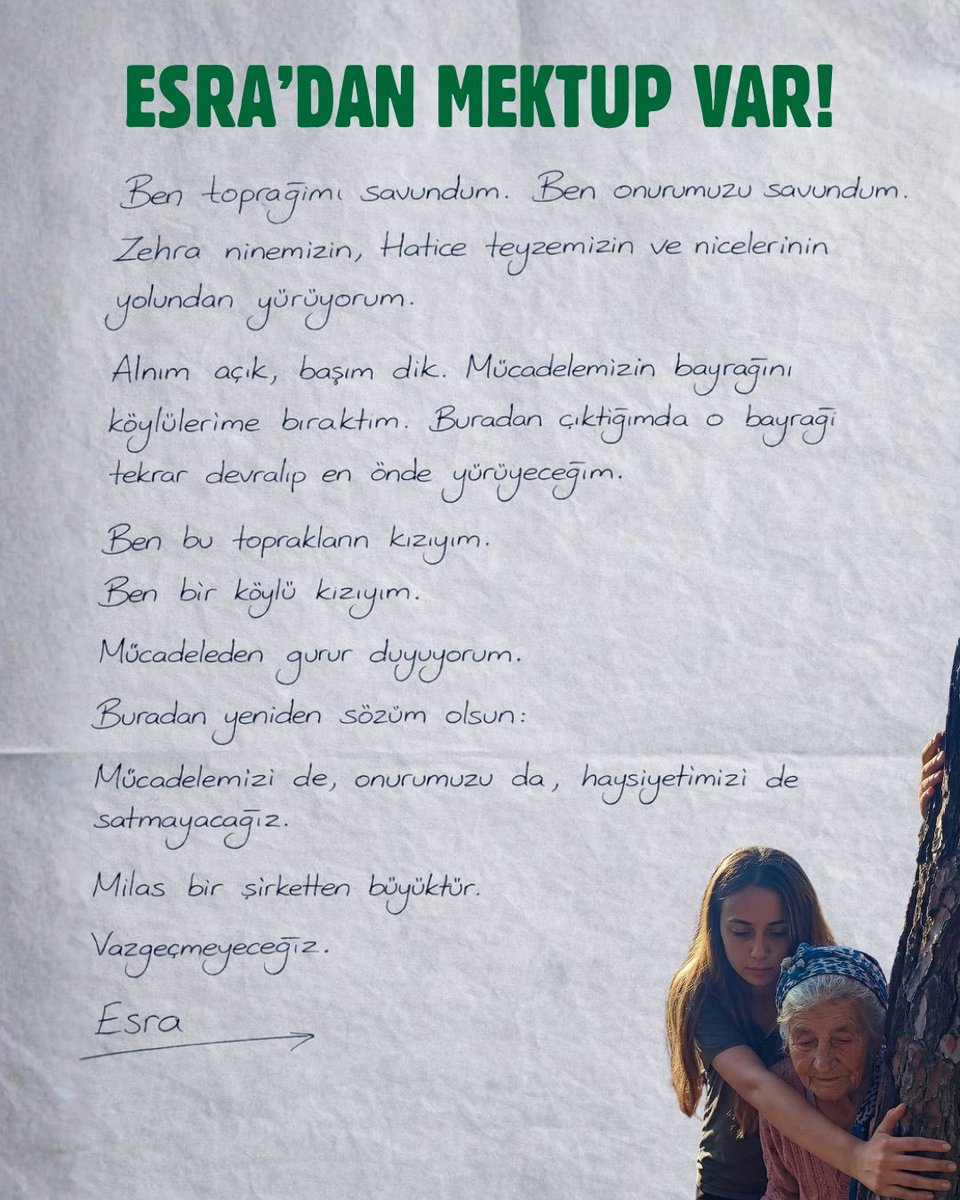 ESRA'DAN MEKTUP VAR!
Ben toprağımı savundum. Ben onurumuzu savundum.
Zehra ninemizin, Hatice teyzemizin ve nicelerinin
yolundan yürüyorum.
Alnım açık, başım dik. Mücadelemizin bayrağını
köylülerime bıraktım. Buradan çıktığımda o bayraği
tekrar devralıp en önde yürüyeceğim.
Ben bu toprakların kızıyım.
Ben bir köylü kızıyım.
Mücadeleden gurur duyuyorum.
Buradan yeniden sözüm olsun:
Mücadelemizi de, onurumuzu da, haysiyetimizi de
satmayacağız.
Milas bir şirketten büyüktür.
Vazgeçmeyeceğiz.
Esra